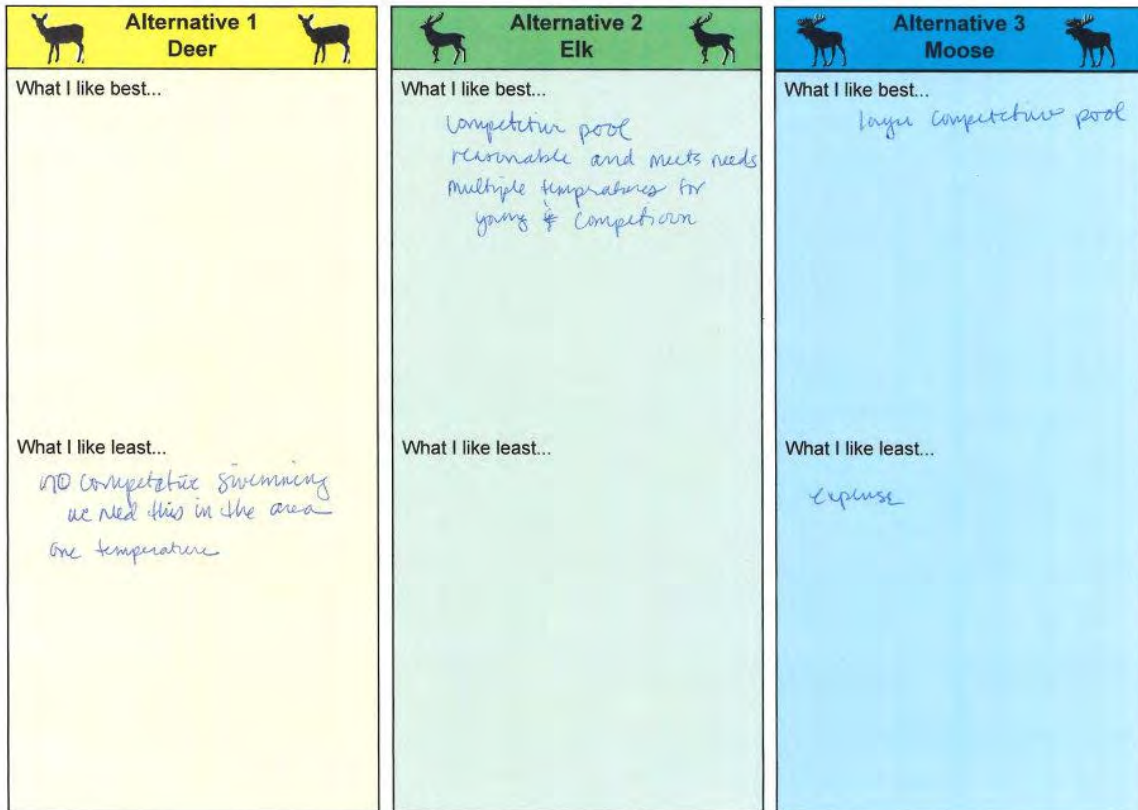 Alternative 1
Deer
What I like best...
What I like least...
no competetive swimming
we need this in the area
one temperature
Alternative 2
Elk
What I like best...
competetive pool
reasonable and meets needs
multiple tempratures for
young & competition
What I like least...
Alternative 3
Moose
What I like best...
larger competetive pool
What I like least...
expense